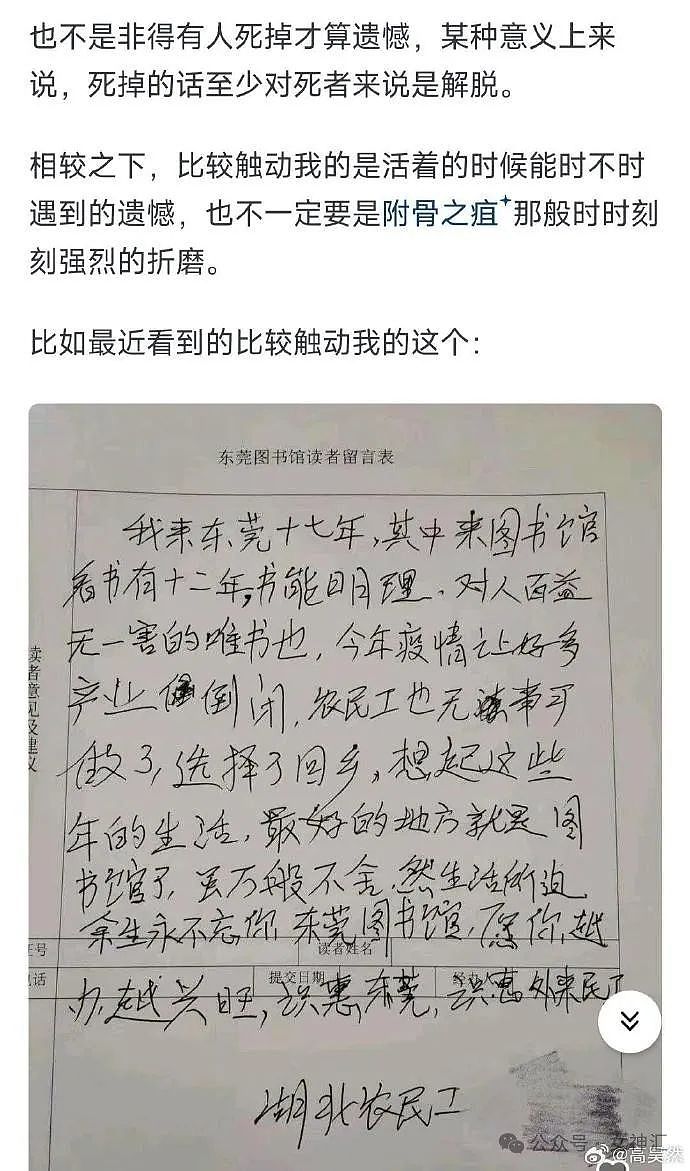 也不是非得有人死掉才算遗憾，某种意义上来
说，死掉的话至少对死者来说是解脱。
相较之下，比较触动我的是活着的时候能时不时
遇到的遗憾，也不一定要是附骨之疽那般时时刻
刻强烈的折磨。
比如最近看到的比较触动我的这个：
东莞图书馆读者留言表
我来东莞十七年，其中来图书馆
看书有十二年，书能明理，对人百益
无一害的唯书也，今年疫情让好多
产业倒闭，农民工也无事可
做了，选择了回乡，想起这些
年的生活，最好的地方就是图
书馆了，虽万般不舍，然生活所迫
余生永不忘你，东莞图书馆，愿你越
办越兴旺，识惠东莞，识惠外来民工
读者意见及建议
证号
读者姓名
电话
提交日期
经办人
湖北农民工
公众号·女神汇
@高昊然